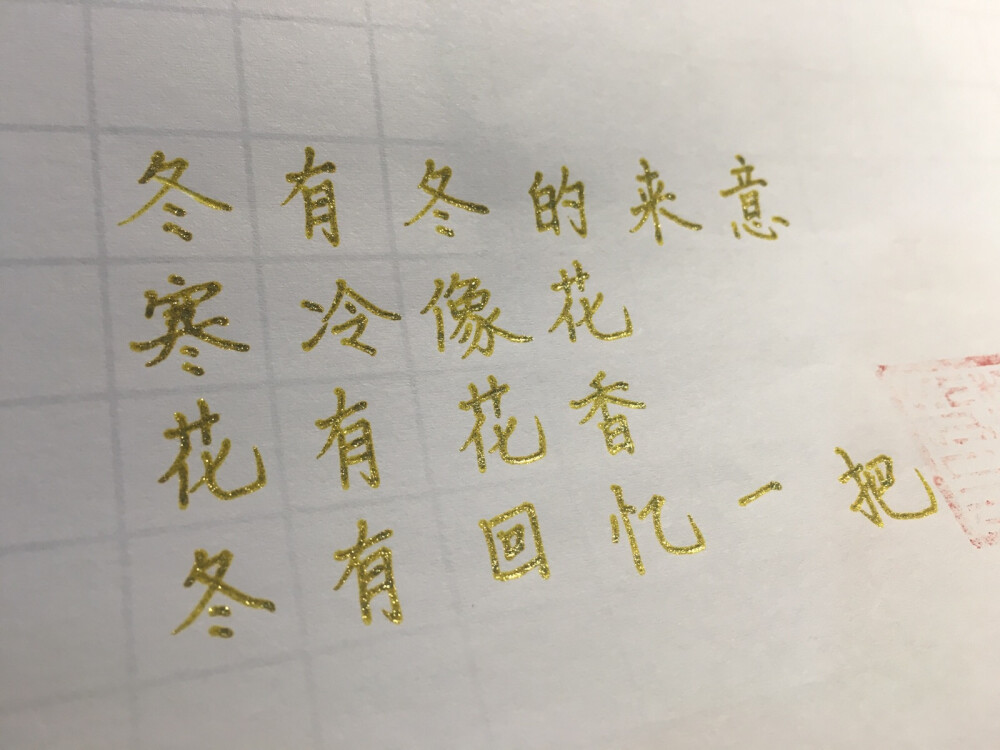 冬有冬的来意
寒冷像花
花有花香
冬有回忆一把